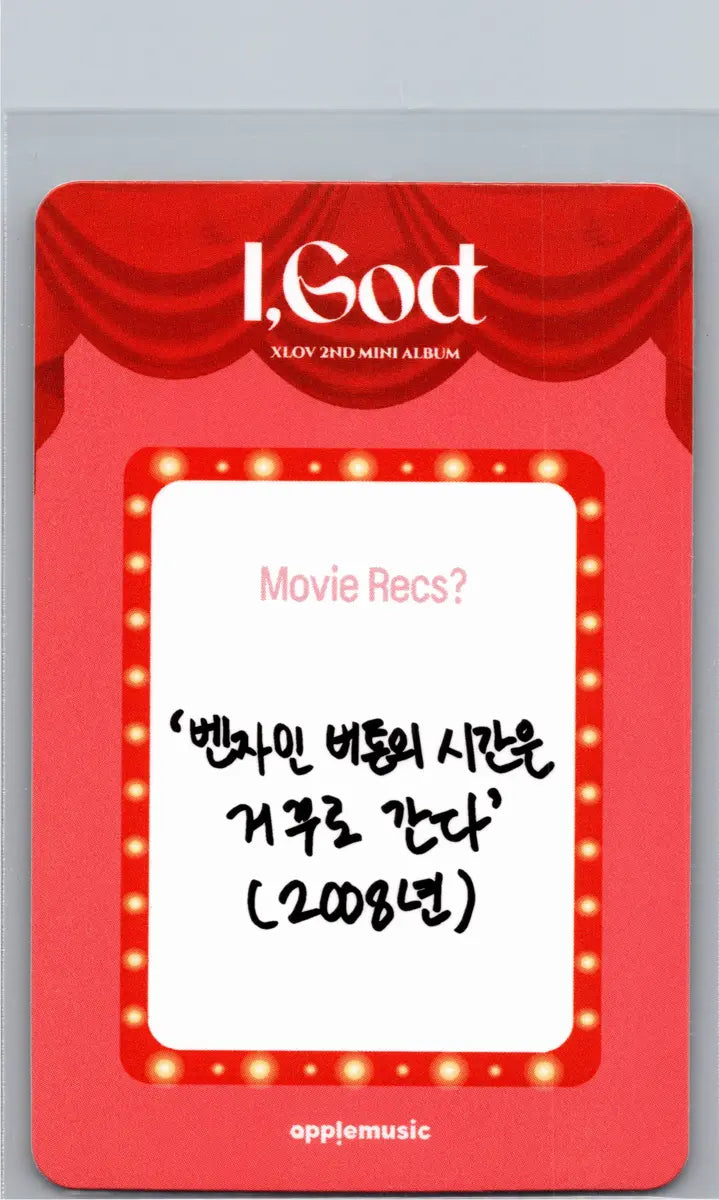 I,God
XLOV 2ND MINI ALBUM
Movie Recs?
‘벤자인 버튼의 시간은
거꾸로 간다’
(2008년)
applemusic